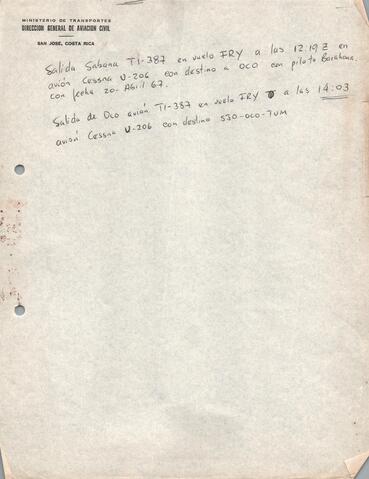 MINISTERIO DE TRANSPORTES
DIRECCION GENERAL DE AVIACION CIVIL
SAN JOSE, COSTA RICA
Salida Sabana TI-387 en vuelo FRY a las 12:19 Z en
avión Cessna U-206 con destino a OCO con piloto Barahona.
con fecha 20-Abril 67.
Salida de Oco avión TI-387 en vuelo FRY a las 14:03
avión Cessna U-206 con destino 530-OCO-TUM